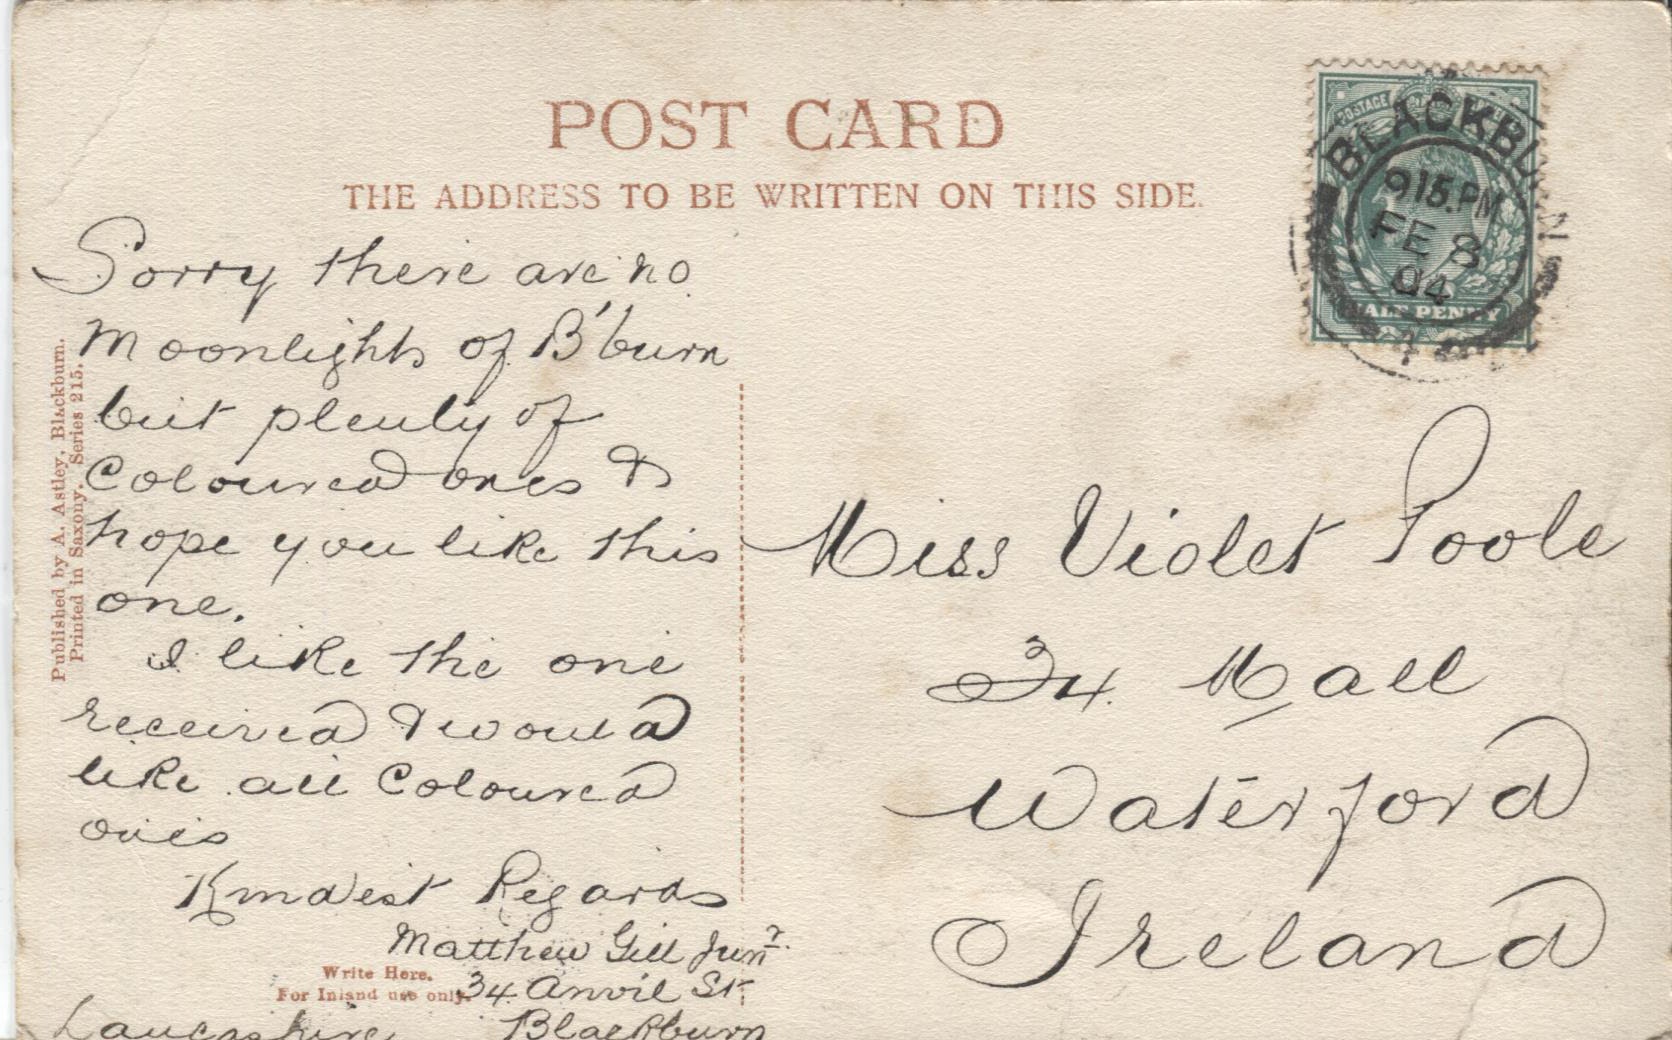 POST CARD
THE ADDRESS TO BE WRITTEN ON THIS SIDE.
POSTAGE
BLACKBURN
9 15. PM
FE 8
04
HALF PENNY
Sorry there are no
Moonlights of B'burn
but plenty of
Coloured ones &
hope you like this
one.
I like the one
received & would
like all Coloured
ones
Kindest Regards
Matthew Gill Junr.
34 Anvil St
Lancashire Blackburn
Write Here.
For Inland use only.
Published by A. Astley, Blackburn.
Printed in Saxony. Series 215.
Miss Violet Poole
34. Mall
Waterford
Ireland